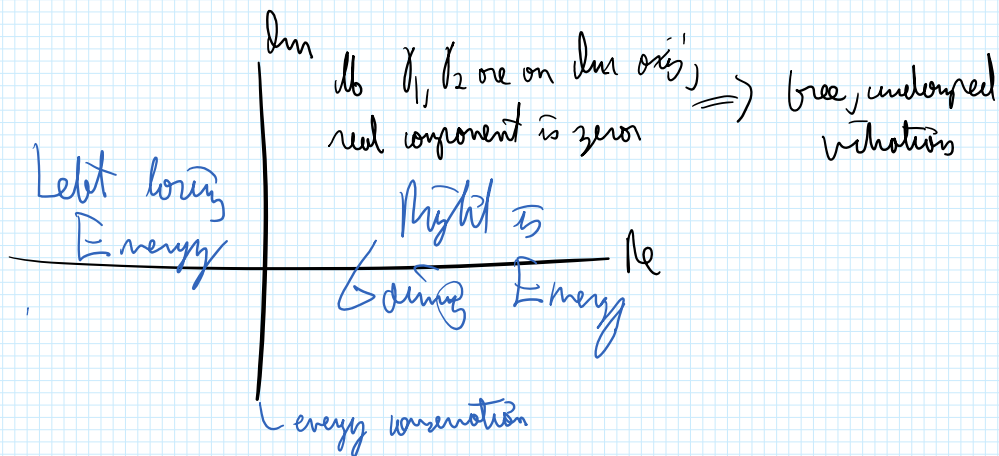 Im
If γ₁, γ₂ are on Im axis,
real component is zero
⇒ free, undamped
vibrations
Left losing
Energy
Right is
Gaining Energy
Re
energy conservation